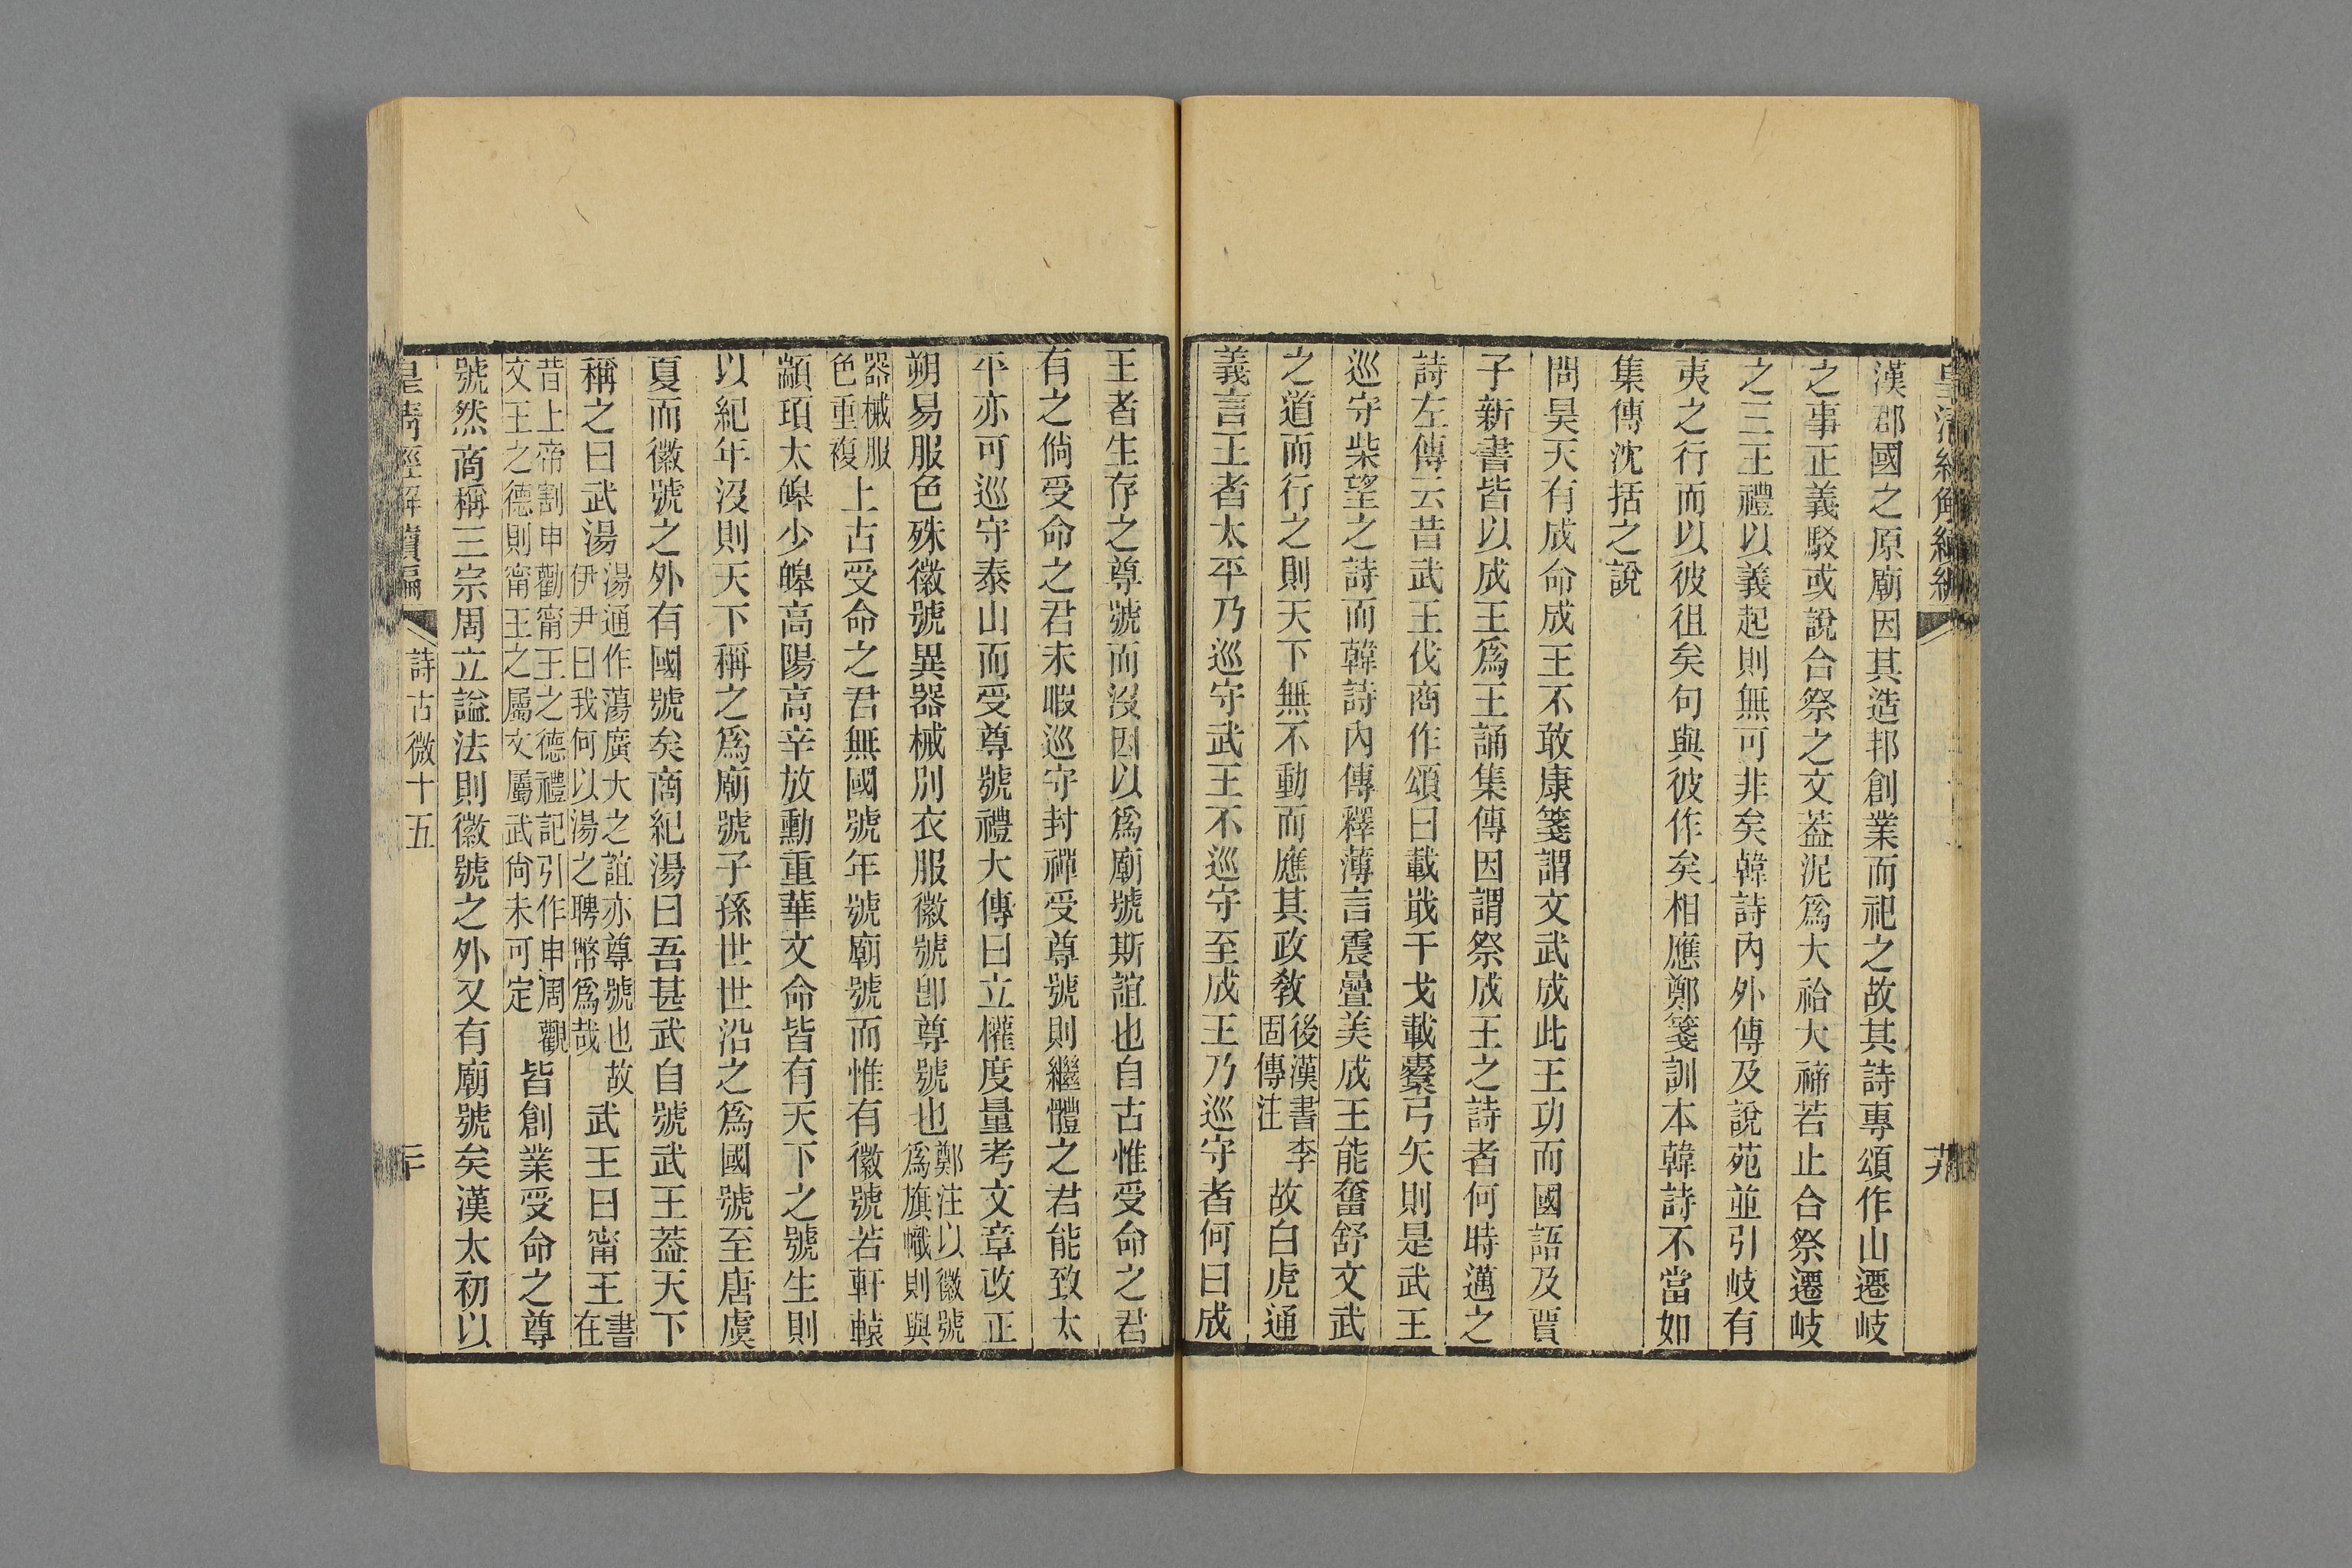 漢郡國之原廟因其造邦創業而祀之故其詩專頌作山遷岐
之事正義駁或說合祭之文葢泥爲大祫大禘若止合祭遷岐
之三王禮以義起則無可非矣韓詩內外傳及說苑並引岐有
夷之行而以彼徂矣句與彼作矣相應鄭箋訓本韓詩不當如
集傳沈括之說
問昊天有成命成王不敢康箋謂文武成此王功而國語及賈
子新書皆以成王爲王誦集傳因謂祭成王之詩者何時邁之
詩左傳云昔武王伐商作頌曰載戢干戈載櫜弓矢則是武王
巡守柴望之詩而韓詩內傳釋薄言震疊美成王能奮舒文武
之道而行之則天下無不動而應其政敎後漢書李固傳注故白虎通
義言王者太平乃巡守武王不巡守至成王乃巡守者何曰成
王者生存之尊號而沒因以爲廟號斯誼也自古惟受命之君
有之倘受命之君未暇巡守封禪受尊號則繼體之君能致太
平亦可巡守泰山而受尊號禮大傳曰立權度量考文章改正
朔易服色殊徽號異器械別衣服徽號卽尊號也鄭注以徽號爲旗幟則與
器械服色重複上古受命之君無國號年號廟號而惟有徽號若軒轅
顓頊太皞少皞高陽高辛放勳重華文命皆有天下之號生則
以紀年沒則天下稱之爲廟號子孫世世沿之爲國號至唐虞
夏而徽號之外有國號矣商紀湯曰吾甚武自號武王葢天下
稱之曰武湯湯通作蕩廣大之誼亦尊號也故伊尹曰我何以湯之聘幣爲哉武王曰甯王書在
昔上帝割申勸甯王之德禮記引作申周觀文王之德則甯王之屬文屬武尙未可定皆創業受命之尊
號然商稱三宗周立謚法則徽號之外又有廟號矣漢太初以
皇淸經解續編
詩古微十五